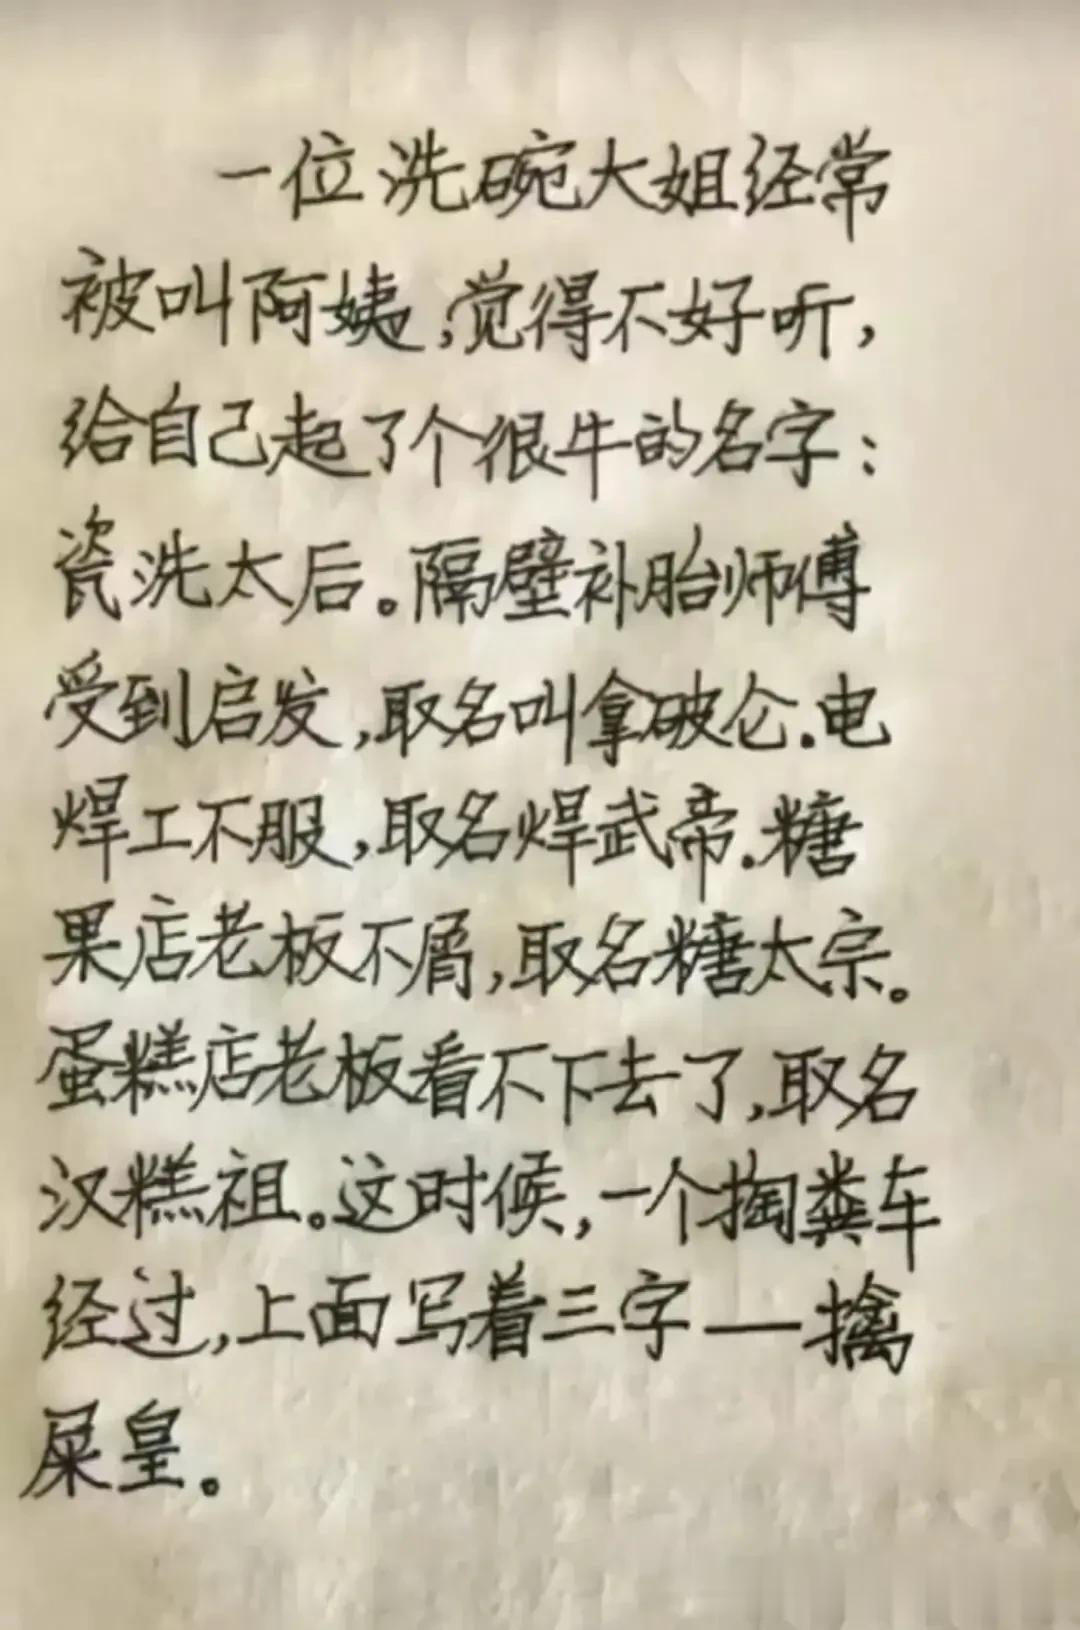 一位洗碗大姐经常
被叫阿姨,觉得不好听,
给自己起了个很牛的名字:
瓷洗太后。隔壁补胎师傅
受到启发,取名叫拿破仑.电
焊工不服,取名焊武帝.糖
果店老板不屑,取名糖太宗。
蛋糕店老板看不下去了,取名
汉糕祖。这时候,一个掏粪车
经过,上面写着三字——擒
屎皇。